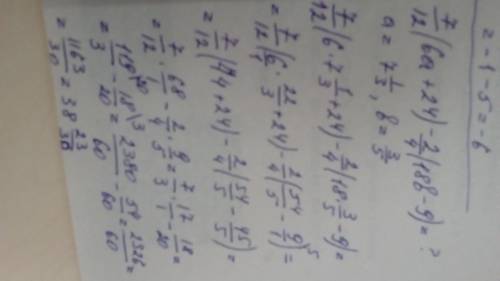 = -1 - 5 = -6
7/12 (6a+24) - 2/4 (18b-9) = ?
a = 7 1/3, b = 3/5
7/12 (6 · 7 1/3 + 24) - 2/4 (18 · 3/5 - 9) =
= 7/12 (6 · 22/3 + 24) - 2/4 (54/5 - 9/1) =
= 7/12 (44+24) - 2/4 (54/5 - 45/5) =
= 7/12 · 68 - 2/4 · 9/5 = 7/3 · 17/1 - 18/20 =
= 119/3 - 18/20 = 2380/60 - 54/60 = 2326/60 =
= 1163/30 = 38 23/30